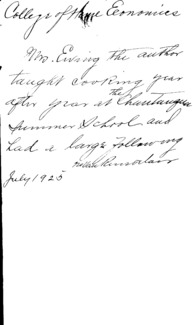 College of Home Economics
Mrs. Ewing the author
taught cooking year
after year at the Chautauqua
Summer School and
had a large following
July 1925